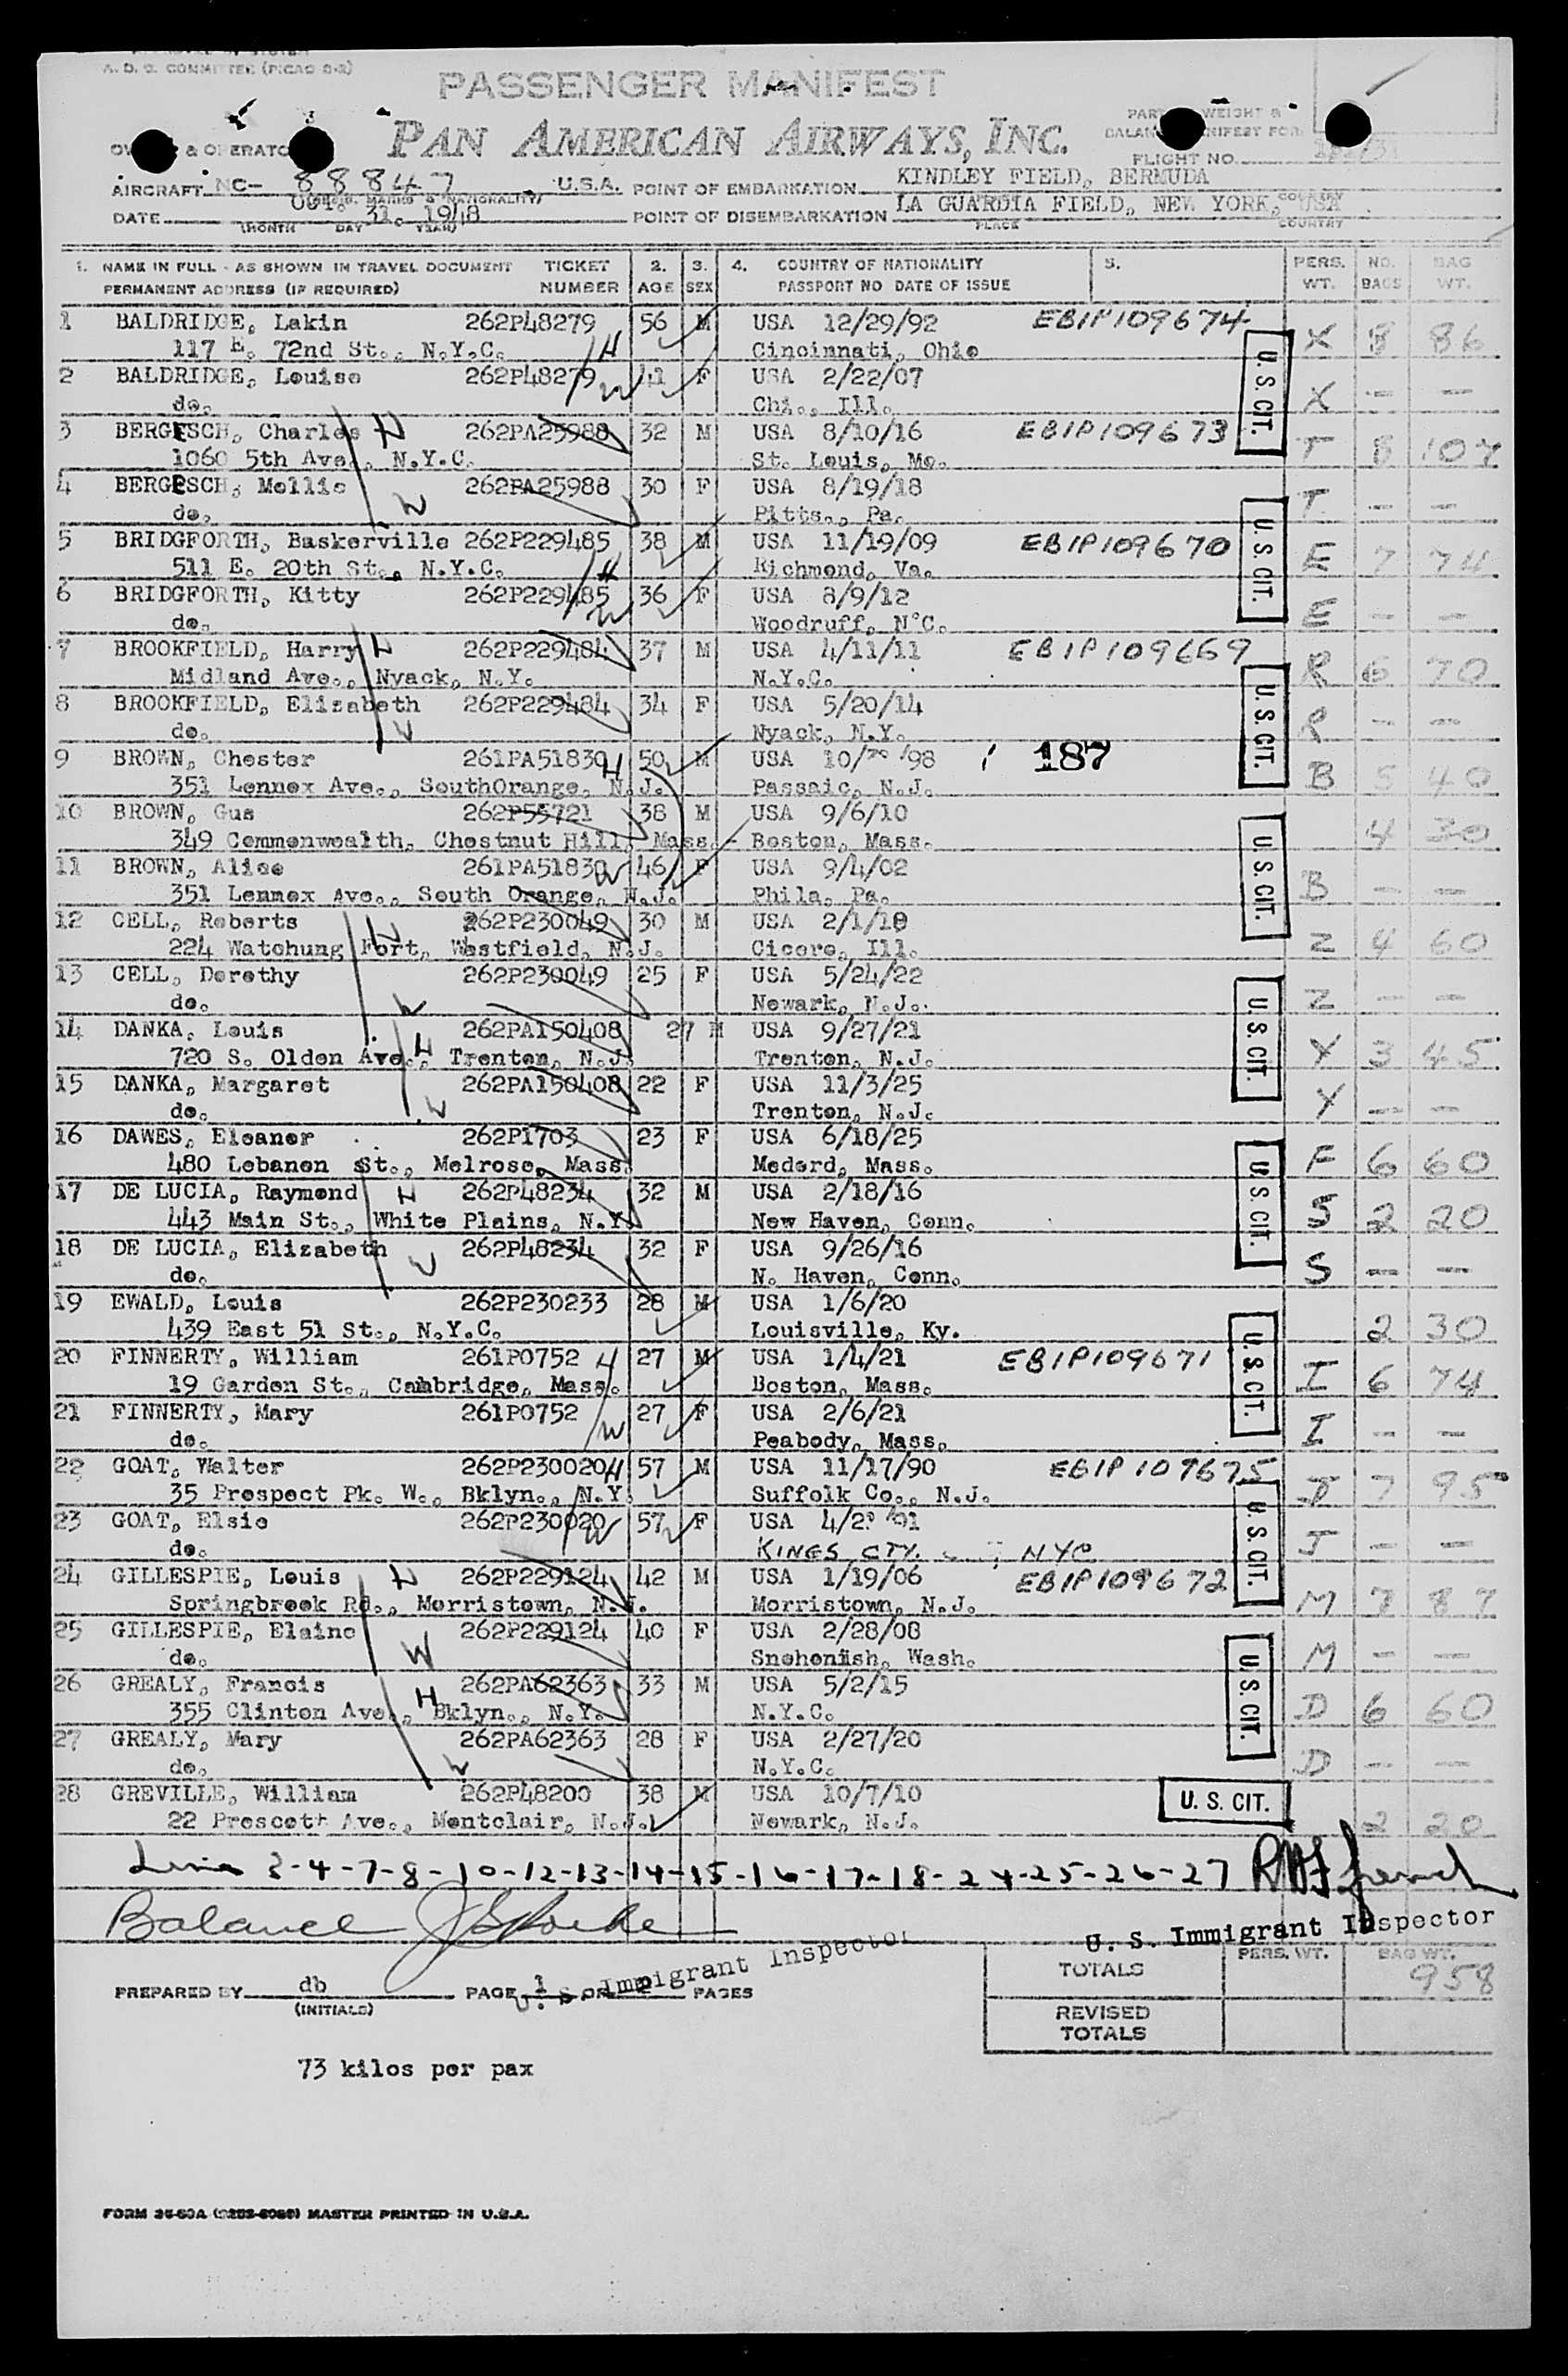 A. D. S. COMMITTEE (PICAO S-2)
PASSENGER MANIFEST
PAN AMERICAN AIRWAYS, INC.
FLIGHT NO.
AIRCRAFT NC- 88847 U.S.A. POINT OF EMBARKATION KINDLEY FIELD, BERMUDA
DATE Oct. 31, 1948 POINT OF DISEMBARKATION LA GUARDIA FIELD, NEW YORK, USA
(MONTH DAY YEAR) PLACE COUNTRY
1. NAME IN FULL - AS SHOWN IN TRAVEL DOCUMENT TICKET 2. 3. 4. COUNTRY OF NATIONALITY 5. PERS. NO. BAG
PERMANENT ADDRESS (IF REQUIRED) NUMBER AGE SEX PASSPORT NO DATE OF ISSUE WT. BAGS WT.
1 BALDRIDGE, Lakin 262P48279 56 M USA 12/29/92 EBIP109674 X 8 86
117 E. 72nd St., N.Y.C. H Cincinnati, Ohio
2 BALDRIDGE, Louise 262P48279 W 41 F USA 2/22/07 X - -
do. Chi., Ill.
3 BERGESCH, Charles H 262PA25988 32 M USA 8/10/16 EBIP109673 T 8 107
1060 5th Ave., N.Y.C. St. Louis, Mo.
4 BERGESCH, Mollie W 262PA25988 30 F USA 8/19/18 T - -
do. Pitts., Pa.
5 BRIDGFORTH, Baskerville 262P229485 38 M USA 11/19/09 EBIP109670 E 7 74
511 E. 20th St., N.Y.C. H Richmond, Va.
6 BRIDGFORTH, Kitty 262P229485 W 36 F USA 8/9/12 E - -
do. Woodruff, N°C.
7 BROOKFIELD, Harry H 262P229484 37 M USA 4/11/11 EBIP109669 R 6 70
Midland Ave., Nyack, N.Y. N.Y.C.
8 BROOKFIELD, Elizabeth W 262P229484 34 F USA 5/20/14 R - -
do. Nyack, N.Y.
9 BROWN, Chester 261PA51830 H 50 M USA 187 B 5 40
351 Lennox Ave., SouthOrange, N.J. Passaic, N.J.
10 BROWN, Gus 262P55721 38 M USA 9/6/10 4 30
349 Commonwealth, Chestnut Hill, Mass.- Boston, Mass.
11 BROWN, Alice 261PA51830 W 46 F USA 9/4/02 B - -
351 Lennox Ave., South Orange, N.J. Phila, Pa.
12 CELL, Roberts H 262P230049 30 M USA 2/1/18 Z 4 60
224 Watchung Fort, Westfield, N.J. Cicero, Ill.
13 CELL, Dorothy W 262P230049 25 F USA 5/24/22 Z - -
do. Newark, N.J.
14 DANKA, Louis 262PA150408 27 M USA 9/27/21 Y 3 45
720 S. Olden Ave., H Trenton, N.J. Trenton, N.J.
15 DANKA, Margaret W 262PA150408 22 F USA 11/3/25 Y - -
do. Trenton, N.J.
16 DAWES, Eleanor 262P1703 23 F USA 6/18/25 F 6 60
480 Lebanon St., Melrose, Mass. Medord, Mass.
17 DE LUCIA, Raymond H 262P48234 32 M USA 2/18/16 S 2 20
443 Main St., White Plains, N.Y. New Haven, Conn.
18 DE LUCIA, Elizabeth W 262P48234 32 F USA 9/26/16 S - -
do. N. Haven, Conn.
19 EWALD, Louis 262P230233 28 M USA 1/6/20 2 30
439 East 51 St., N.Y.C. Louisville, Ky.
20 FINNERTY, William 261P0752 H 27 M USA 1/4/21 EBIP109671 I 6 74
19 Garden St., Cambridge, Mass. Boston, Mass.
21 FINNERTY, Mary 261P0752 W 27 F USA 2/6/21 I - -
do. Peabody, Mass.
22 GOAT, Walter 262P230020 H 57 M USA 11/17/90 EBIP109675 J 7 95
35 Prospect Pk. W., Bklyn., N.Y. Suffolk Co., N.J.
23 GOAT, Elsie 262P230020 W 57 F USA J - -
do. KINGS CTY. NYC
24 GILLESPIE, Louis H 262P229124 42 M USA 1/19/06 EBIP109672 M 7 87
Springbrook Rd., Morristown, N.J. Morristown, N.J.
25 GILLESPIE, Elaine W 262P229124 40 F USA 2/28/08 M - -
do. Snohomish, Wash.
26 GREALY, Francis H 262PA62363 33 M USA 5/2/15 D 6 60
355 Clinton Ave., Bklyn., N.Y. N.Y.C.
27 GREALY, Mary W 262PA62363 28 F USA 2/27/20 D - -
do. N.Y.C.
28 GREVILLE, William 262P48200 38 M USA 10/7/10 2 20
22 Prescott Ave., Montclair, N.J. Newark, N.J.
U.S. CIT.
U.S. CIT.
U.S. CIT.
U.S. CIT.
U.S. CIT.
U.S. CIT.
U.S. CIT.
U.S. CIT.
U.S. CIT.
U. S. CIT.
3-4-7-8-10-12-13-14-15-16-17-18-24-25-26-27
Balance
U. S. Immigrant Inspector
U. S. Immigrant Inspector
TOTALS PERS. WT. BAG WT. 958
PREPARED BY db PAGE 1 OF PAGES
(INITIALS)
REVISED
TOTALS
73 kilos per pax
MASTER PRINTED IN U.S.A.